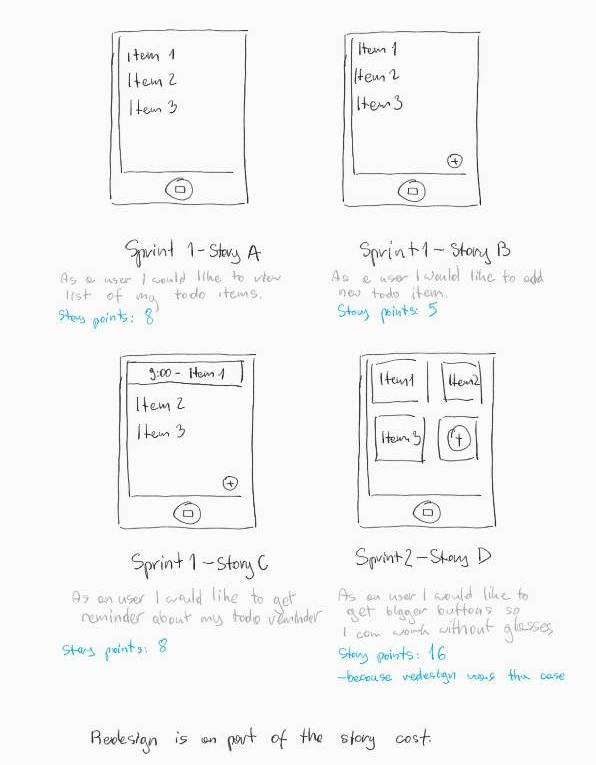 Item 1
Item 2
Item 3
Item 1
Item 2
Item 3
+
Sprint 1 - Story A
As a user I would like to view
list of my todo items.
Story points: 8
Sprint 1 - Story B
As a user I would like to add
new todo item.
Story points: 5
9:00 - Item 1
Item 2
Item 3
+
Item 1
Item 2
Item 3
+
Sprint 1 - Story C
As an user I would like to get
reminder about my todo reminder
Story points: 8
Sprint 2 - Story D
As an user I would like to
get bigger buttons so
I can work without glasses
Story points: 16
- because redesign was the case
Redesign is an part of the story cost.